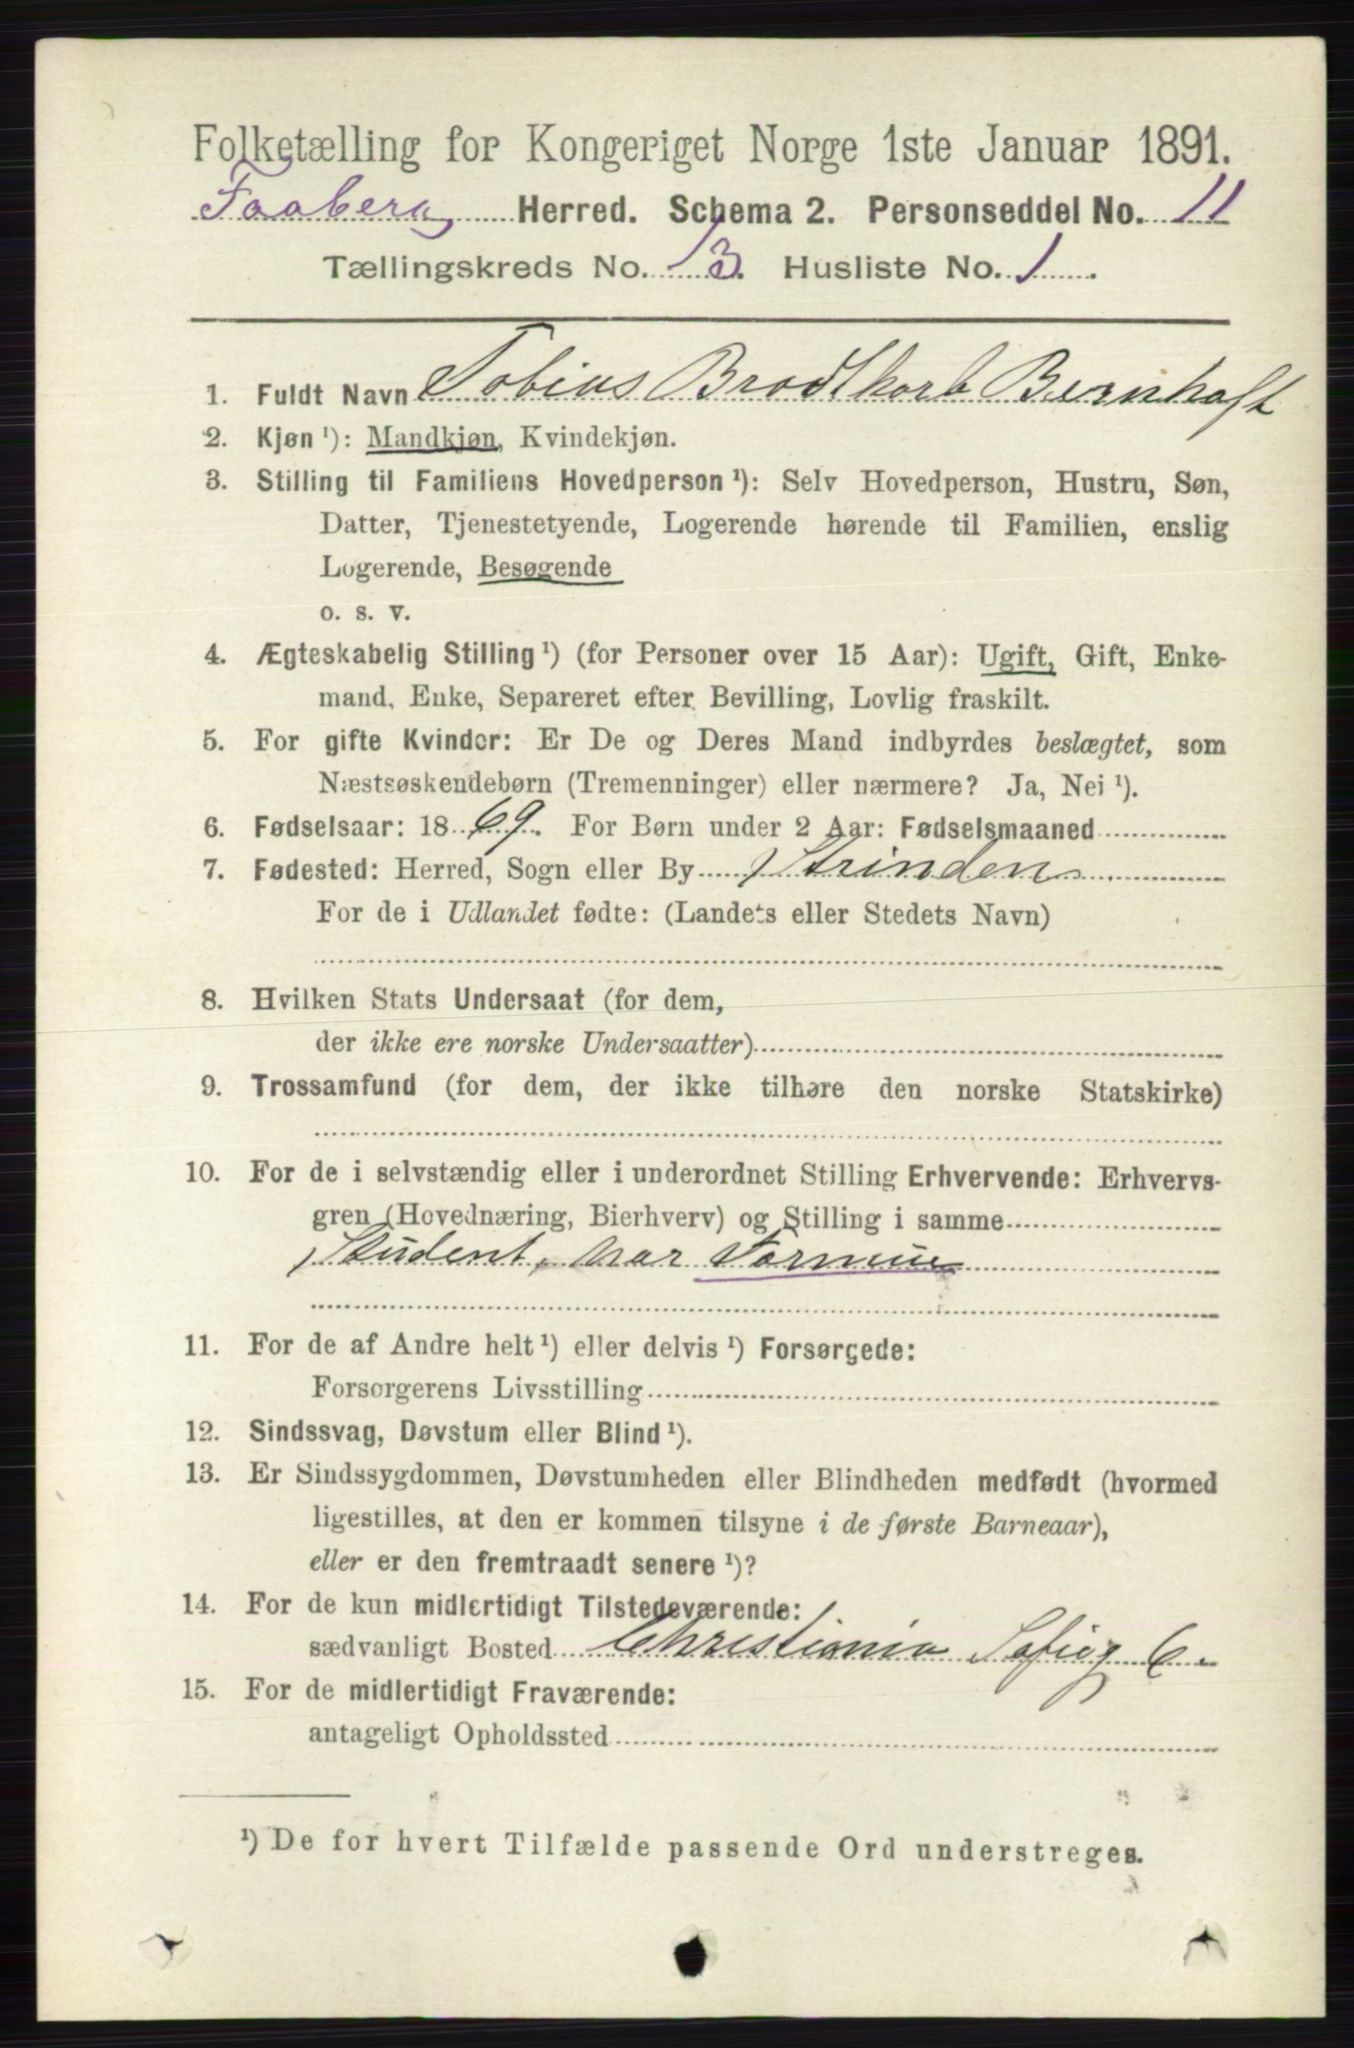 Folketælling for Kongeriget Norge 1ste Januar 1891.
Faaberg Herred. Schema 2. Personseddel No. 11
Tællingskreds No. 13. Husliste No. 1.
1. Fuldt Navn Tobias Brodtkorb Bernhoft
2. Kjøn ¹): Mandkjøn, Kvindekjøn.
3. Stilling til Familiens Hovedperson ¹): Selv Hovedperson, Hustru, Søn,
Datter, Tjenestetyende, Logerende hørende til Familien, enslig
Logerende, Besøgende
o. s. v.
4. Ægteskabelig Stilling ¹) (for Personer over 15 Aar): Ugift, Gift, Enke-
mand, Enke, Separeret efter Bevilling, Lovlig fraskilt.
5. For gifte Kvinder: Er De og Deres Mand indbyrdes beslægtet, som
Næstsøskendebørn (Tremenninger) eller nærmere? Ja, Nei ¹).
6. Fødselsaar: 1869. For Børn under 2 Aar: Fødselsmaaned
7. Fødested: Herred, Sogn eller By Strinden
For de i Udlandet fødte: (Landets eller Stedets Navn)
8. Hvilken Stats Undersaat (for dem,
der ikke ere norske Undersaatter)
9. Trossamfund (for dem, der ikke tilhøre den norske Statskirke)
10. For de i selvstændig eller i underordnet Stilling Erhvervende: Erhvervs-
gren (Hovednæring, Bierhverv) og Stilling i samme
Student, har Formue
11. For de af Andre helt ¹) eller delvis ¹) Forsørgede:
Forsørgerens Livsstilling
12. Sindssvag, Døvstum eller Blind ¹).
13. Er Sindssygdommen, Døvstumheden eller Blindheden medfødt (hvormed
ligestilles, at den er kommen tilsyne i de første Barneaar),
eller er den fremtraadt senere ¹)?
14. For de kun midlertidigt Tilstedeværende:
sædvanligt Bosted Christiania Sofieg 6.
15. For de midlertidigt Fraværende:
antageligt Opholdssted
¹) De for hvert Tilfælde passende Ord understreges.